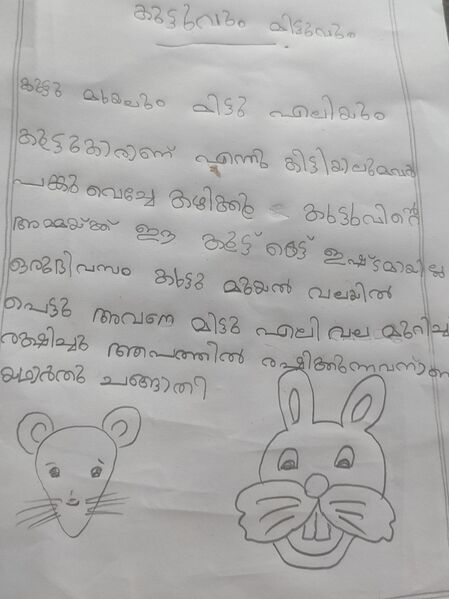 കുട്ടുവും മിട്ടുവും
കുട്ടു മുയലും മിട്ടു എലിയും
കൂട്ടുകാരാണ് എന്തു കിട്ടിയാലുമവർ
പങ്കു വെച്ചേ കഴിക്കൂ കുട്ടുവിന്റെ
അമ്മയ്ക്ക് ഈ കൂട്ട് കെട്ട് ഇഷ്ടമായില്ല
ഒരുദിവസം കുട്ടു മുയൽ വലയിൽ
പെട്ടു അവനെ മിട്ടു എലി വല മുറിച്ച
രക്ഷിച്ചു ആപത്തിൽ രക്ഷിക്കുന്നവനാണ
യഥാർത്ഥ ചങ്ങാതി